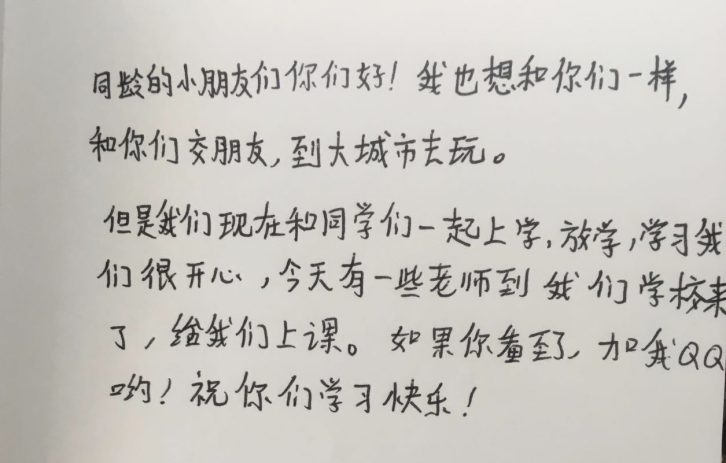 同龄的小朋友们你们好！我也想和你们一样，
和你们交朋友，到大城市去玩。
但是我们现在和同学们一起上学，放学，学习我
们很开心，今天有一些老师到我们学校来
了，给我们上课。如果你看到了，加我QQ
哟！祝你们学习快乐！